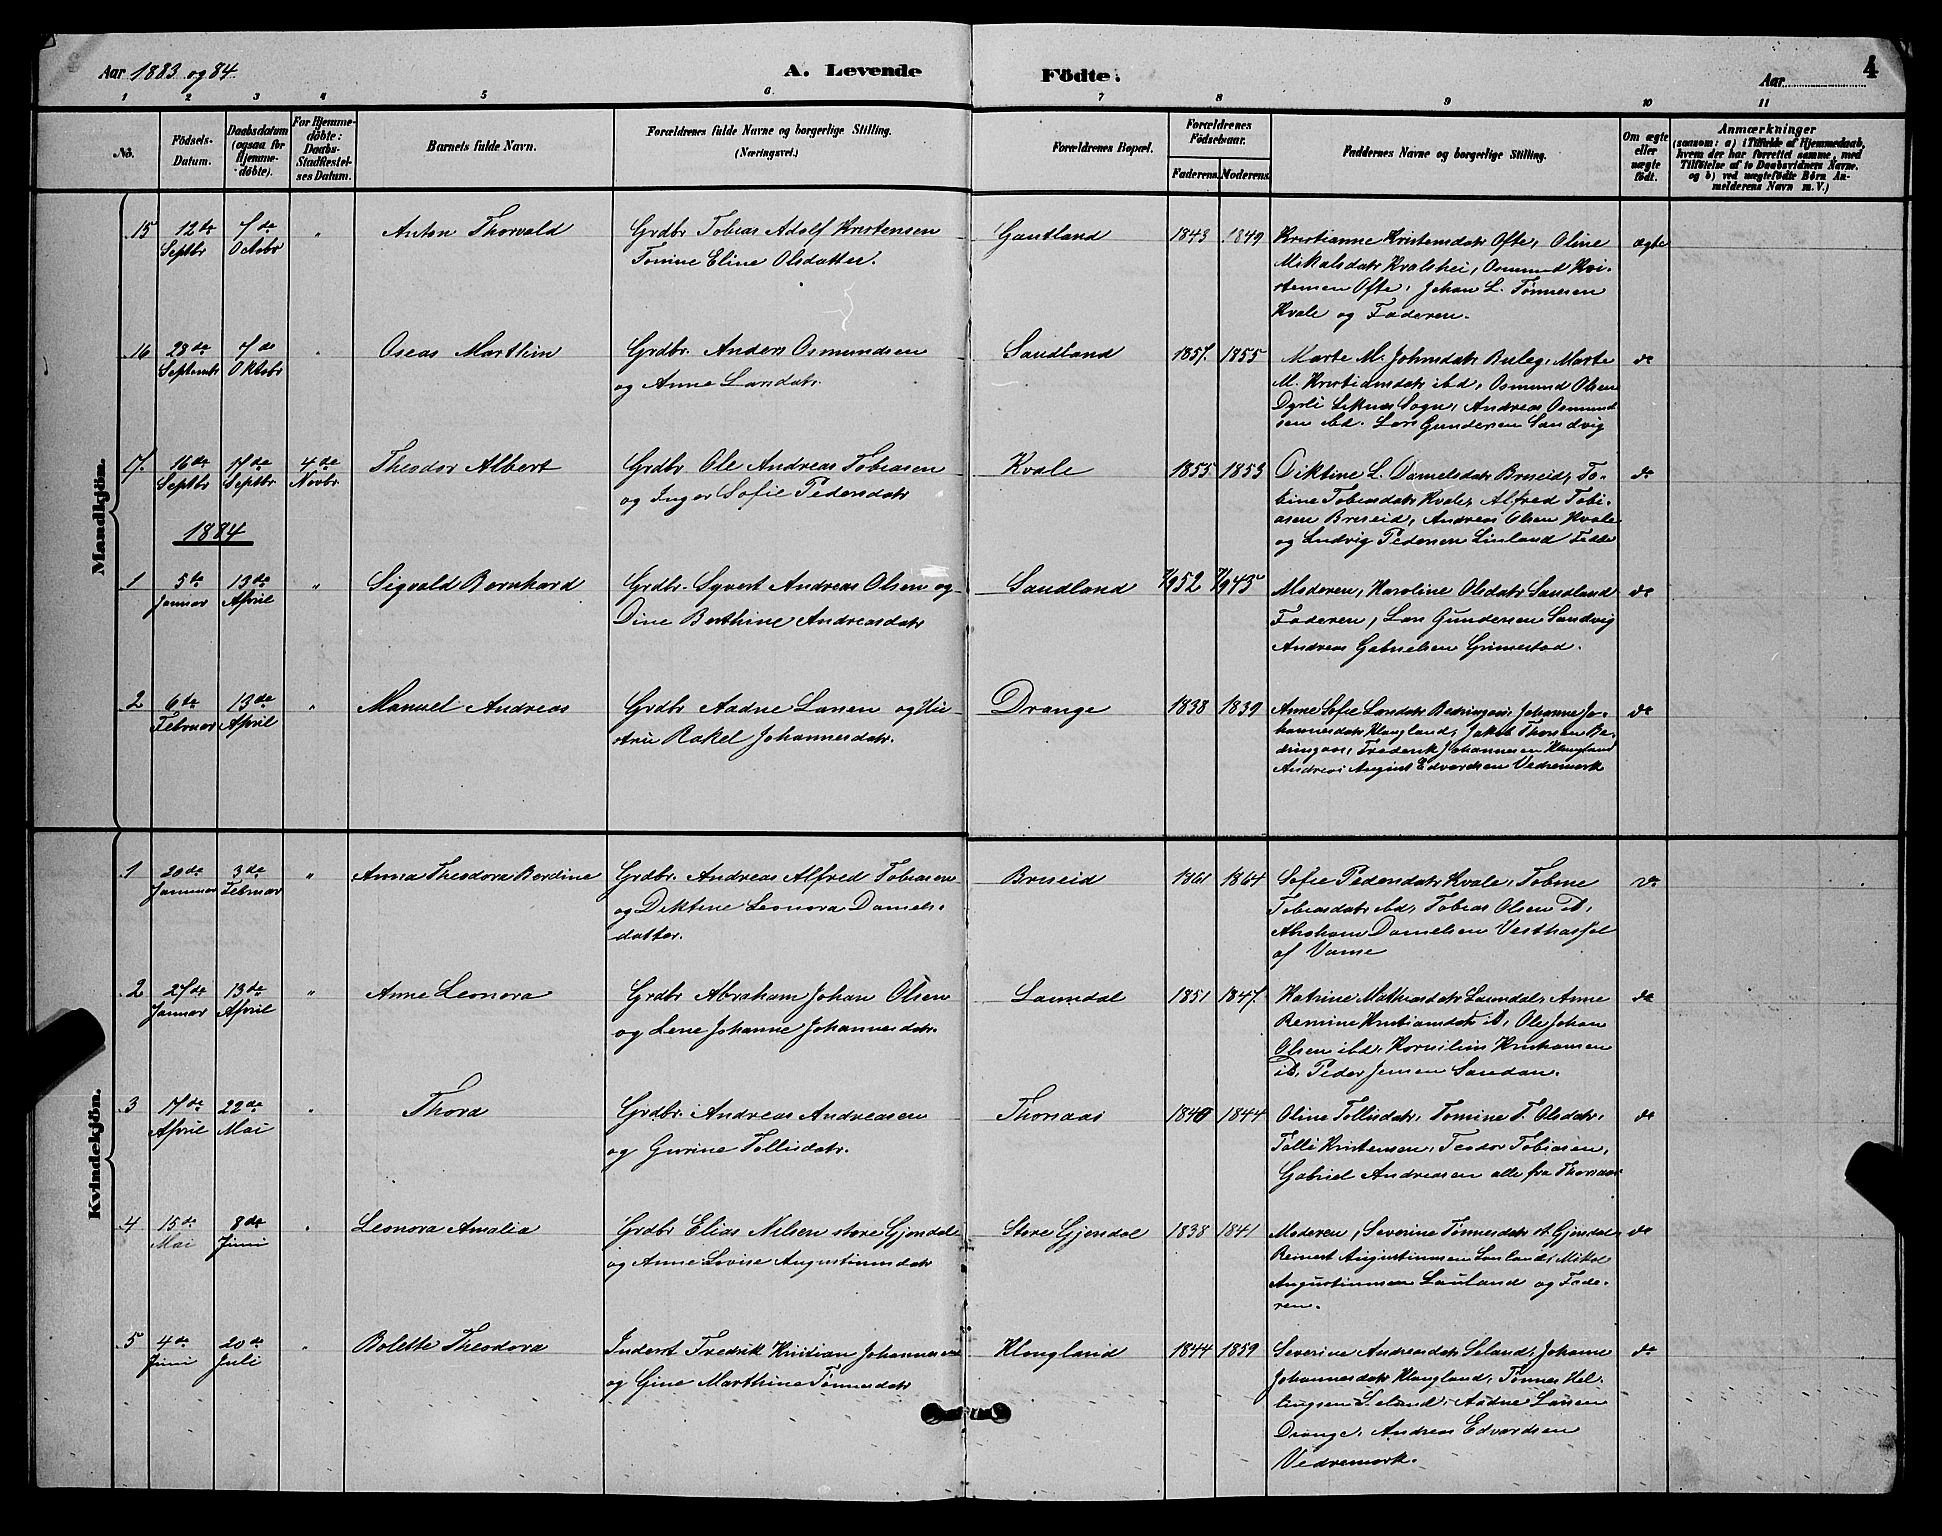 Aar 1883 og 84.
A. Levende Födte.
Aar
4
1 2 3 4 5 6 7 8 9 10 11
No.
Födsels-Datum.
Daabsdatum (ogsaa for Hjemme-döbte).
For Hjemme-döbte: Daabs-Stadfæstel-ses Datum.
Barnets fulde Navn.
Forældrenes fulde Navne og borgerlige Stilling.
(Næringsvei.)
Forældrenes Bopæl.
Forældrenes Födselsaar.
Faderens. Moderens.
Faddernes Navne og borgerlige Stilling.
Om ægte eller uægte födt.
Anmærkninger
(saasom: a) i Tilfælde af Hjemmedaab,
hvem der har forrettet samme, med
Tilföielse af to Daabsvidners Navne,
og b) ved uægtefödte Börn An-
melderens Navn m. V.)
Mandkjön.
15 12te Septbr 7de Octobr " Anton Thorvald
Grdbr Tobias Adolf Kristensen
Tomine Eline Olsdatter.
Gautland 1843 1849
Kristianne Kristensdatr Ofte, Oline
Mikalsdatr Kvalshei, Osmund Kri-
stensen Ofte, Johan L. Tønnesen
Kvale og Faderen.
ægte
16 23de Septembr 7de Oktobr " Oseas Marthin
Grdbr. Anders Osmundsen
og Anne Larsdatr.
Sandland 1857. 1855
Marte M. Johnsdatr Buleg, Marte
M. Kristiansdatr ibd, Osmund Olsen
Dyrli Leknes Sogn, Andreas Osmund
sen ibd. Lars Gundersen Sandvig
do
17. 16de Septbr 17de Septbr 4de Novbr Theodor Albert
Grdbr Ole Andreas Tobiasen
og Inger Sofie Pedersdatr
Kvale 1855 1853
Diktine L. Danielsdatr Briseid, To-
bine Tobiasdatr Kvale, Alfred Tobi-
asen Briseid, Andreas Olsen Kvale
og Ludvig Pedersen Linland
do
1884
1 5te Januar 13de April " Sigvald Bernhard
Grdbr. Syvert Andreas Olsen og
Dine Berthine Andreasdatr
Sandland 7/9 52 7/9 45
Moderen, Karoline Olsdatr Sandland
Faderen, Lars Gundersen Sandvig
Andreas Gabrielsen Grimestad.
do
2 6te Februar 13de April " Manuel Andreas
Grdbr Aadne Larsen og Hu
stru Rakel Johannesdatr.
Drange 1838 1839
Anne Sofie Larsdatr Bedringaas, Johanne Jo-
hannesdatr Klungland, Jakob Thorsen Be-
dringaas, Frederik Johannesen Klungland
Andreas August Edvardsen Vedremork
do
Kvindekjön.
1 20de Januar 3de Februar " Anna Theodora Berdine
Grdbr. Andreas Alfred Tobiasen
og Diktine Leonora Daniels-
datter.
Briseid 1861 1864
Sofie Pedersdatr Kvale, Tobine
Tobiasdatr ibd, Tobias Olsen ib,
Abraham Danielsen Vesthassel
af Vanse
do
2 27de Januar 13de April " Anne Leonora
Grdbr Abraham Johan Olsen
og Lene Johanne Johannesdatr.
Laundal 1851 1847.
Katrine Mathiasdatr Laundal, Anne
Remine Kristiansdatr ib, Ole Johan
Olsen ibd, Kornilius Kristiansen
ib, Peder Jensen Sandan.
do
3 17de April 22de Mai " Thora
Grdbr. Andreas Andreassen
og Gurine Tollisdatr.
Thorsaas 1840 1844
Oline Tollisdatr, Tomine T. Olsdatr,
Tolli Kristensen, Teodor Tobiasen,
Gabriel Andreasen alle fra Thorsaas
do
4 15de Mai 8de Juni " Leonora Amalia
Grdbr Elias Nilsen store Gjendal
og Anne Lovise Augustinusdatr
Store Gjendal 1838 1841
Moderen, Severine Tønnesdatr st. Gjendal
Reinert Augustinusen Lauland, Mikal
Augustinusen Lauland og Fade-
ren.
do
5 4de Juni 20de Juli " Bolette Theodora
Inderst Fredrik Kristian Johannesen
og Gine Marthine Tønnesdatr
Klungland 1844 1859
Severine Andreasdatr Seland, Johanne
Johannesdatr Klungland, Tønnes Hel-
lingsen Seland, Aadne Larsen
Drange, Andreas Edvardsen
Vedremork.
do